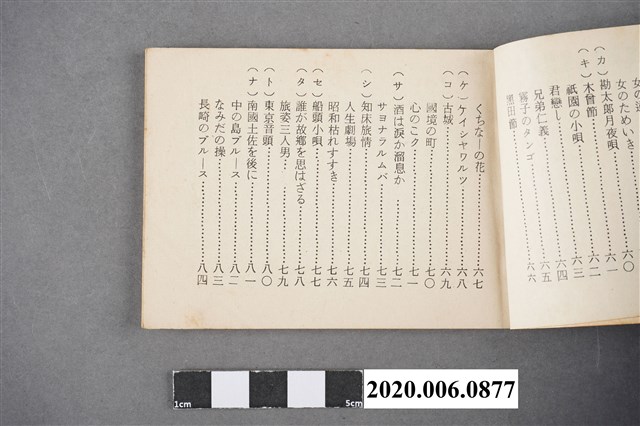 女のためいき…六〇
（カ）勘太郎月夜唄…六一
（キ）木曾節…六二
祇園の小唄…六三
君戀し…六四
兄弟仁義…六五
霧子のタンゴ…六六
黒田節
くちなーの花…六七
（ケ）ケイシャワルツ…六八
（コ）古城…六九
國境の町…七〇
心のこク…七一
（サ）酒は淚か溜息か…七二
サヨナラルムバ…七三
（シ）知床旅情…七四
人生劇場…七五
昭和枯れすすき…七六
（セ）船頭小唄…七七
（タ）誰が故鄉を思はざる…七八
旅姿三人男…七九
（ト）東京音頭…八〇
（ナ）南國土佐を後に…八一
中の島ブルース…八二
なみだの操…八三
長崎のブルース…八四
1cm 5cm
2020.006.0877